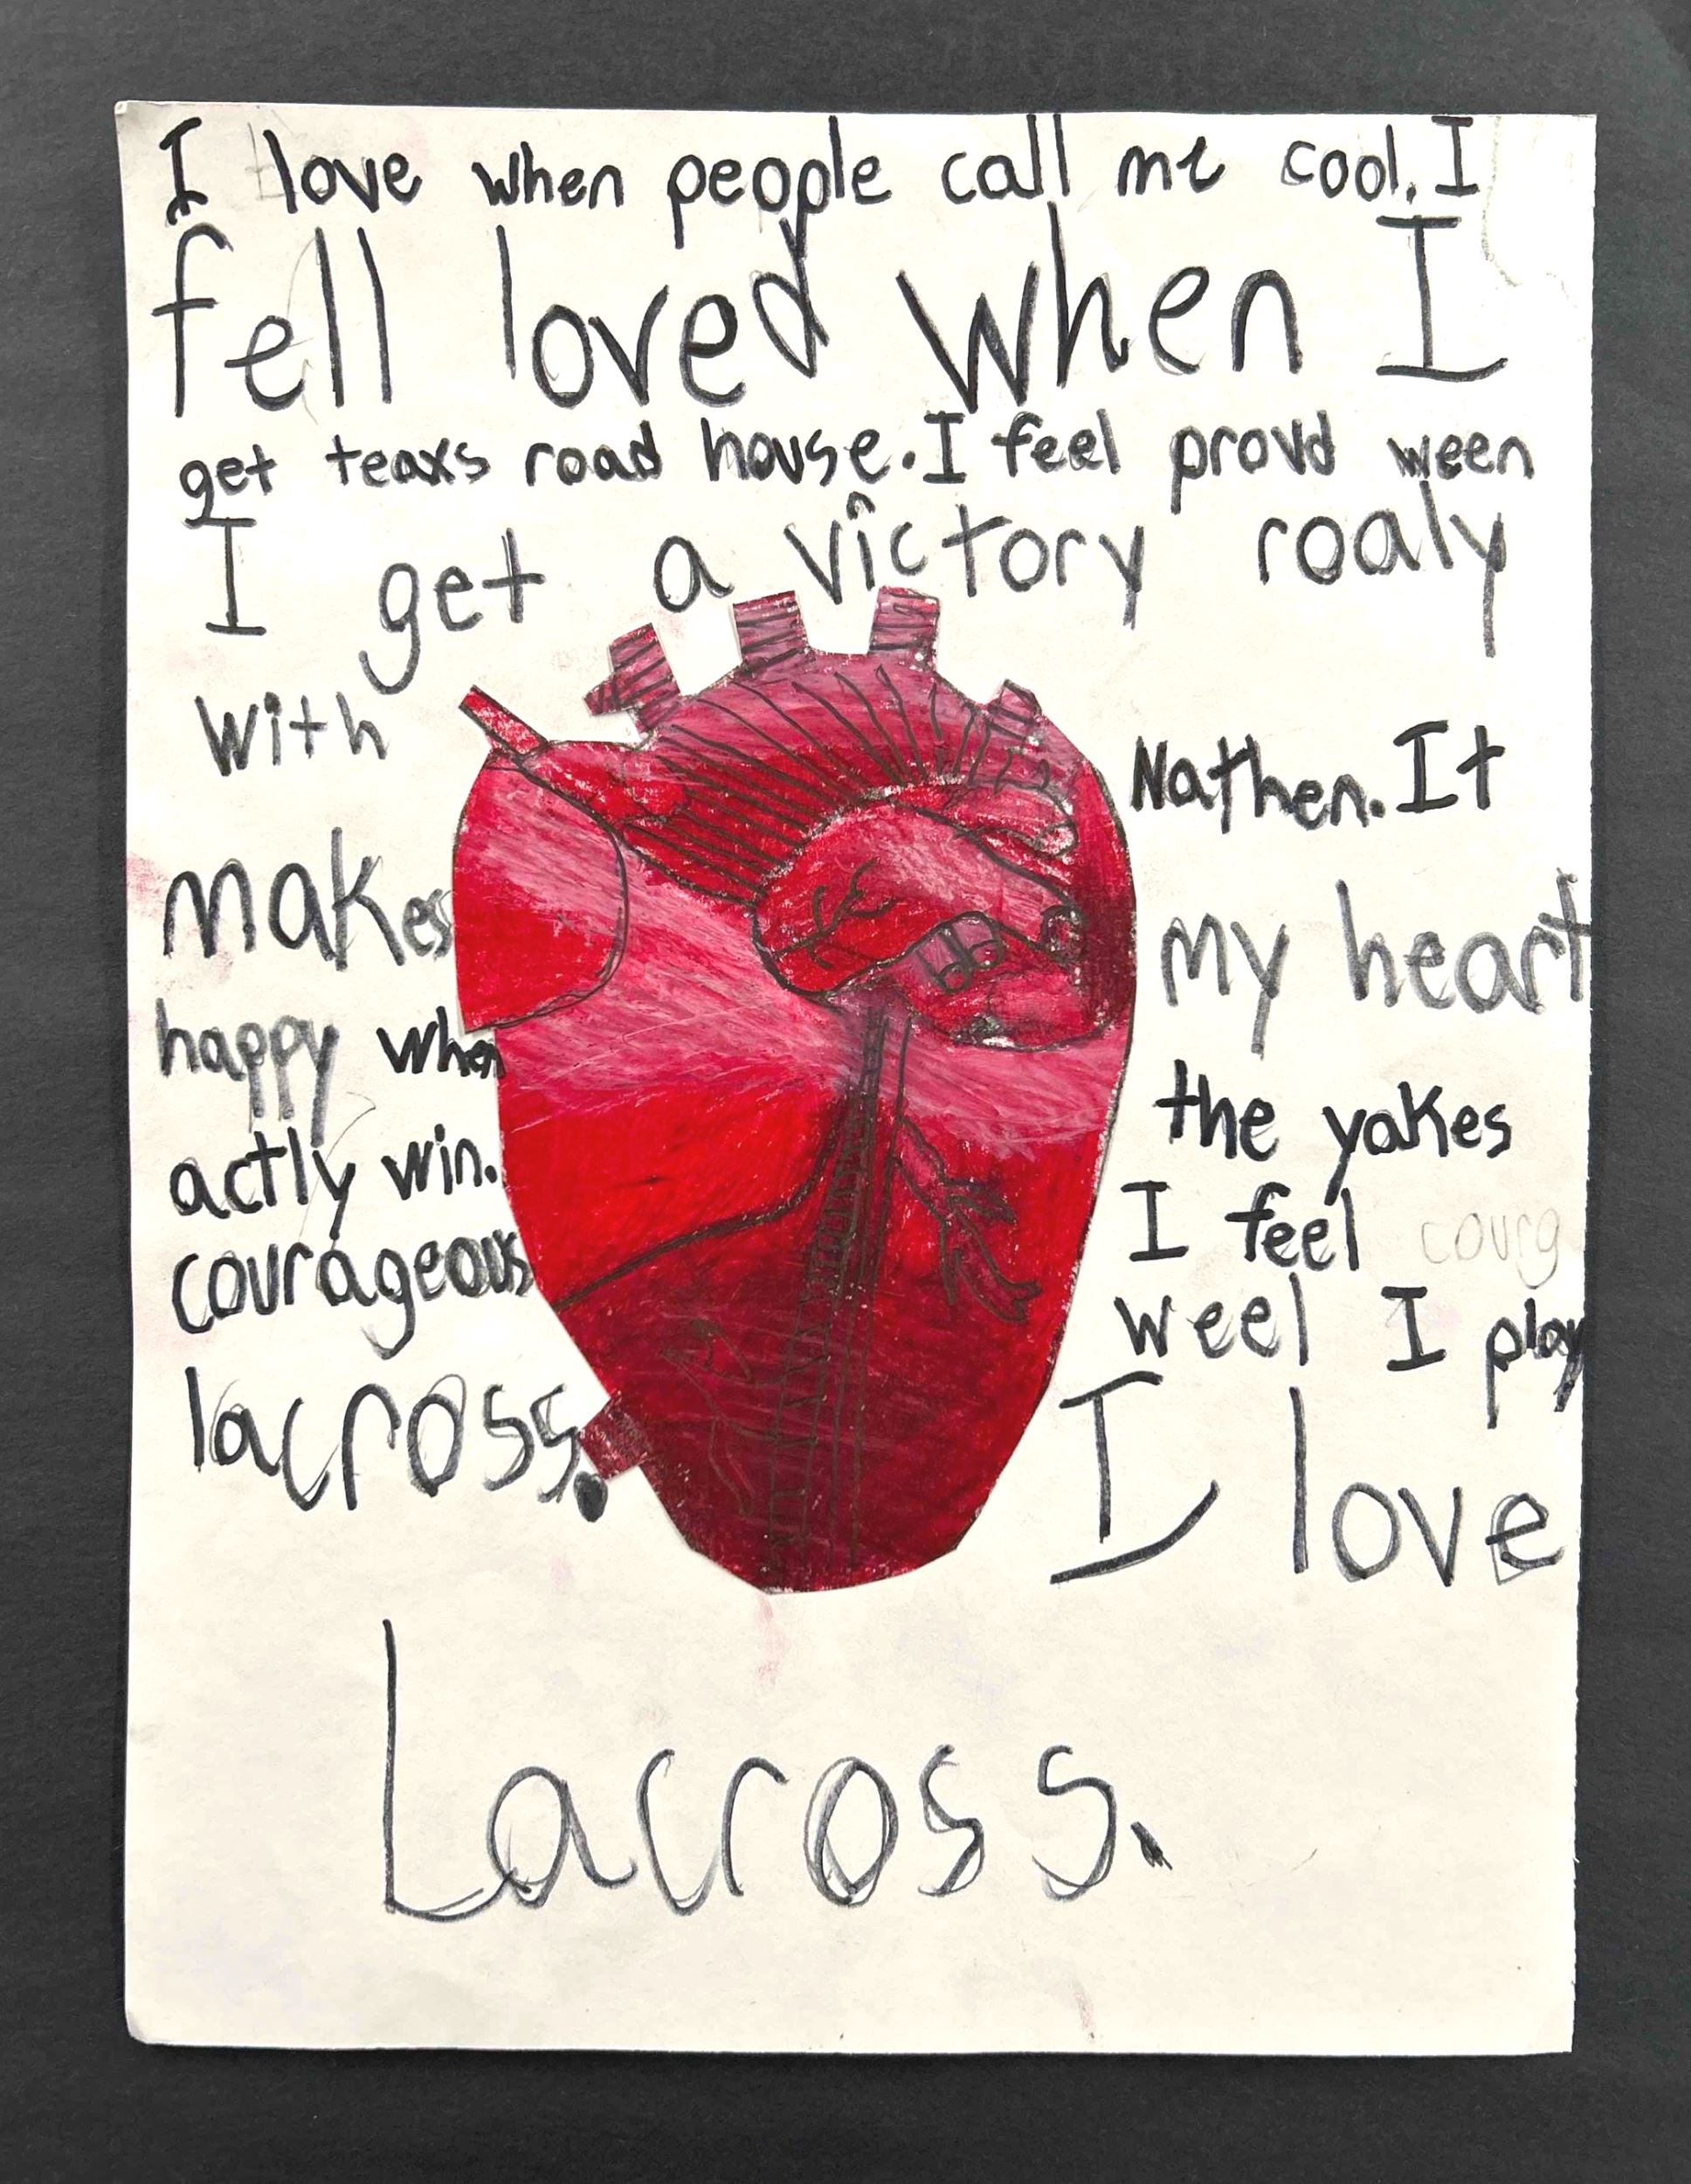 I love when people call me cool. I
fell loved when I
get teaxs road house. I feel proud ween
I get a victory roaly
with Nathen. It
makes my heart
happy when the yakes
actly win. I feel courg
courageous weel I play
lacross. I love
Lacross.